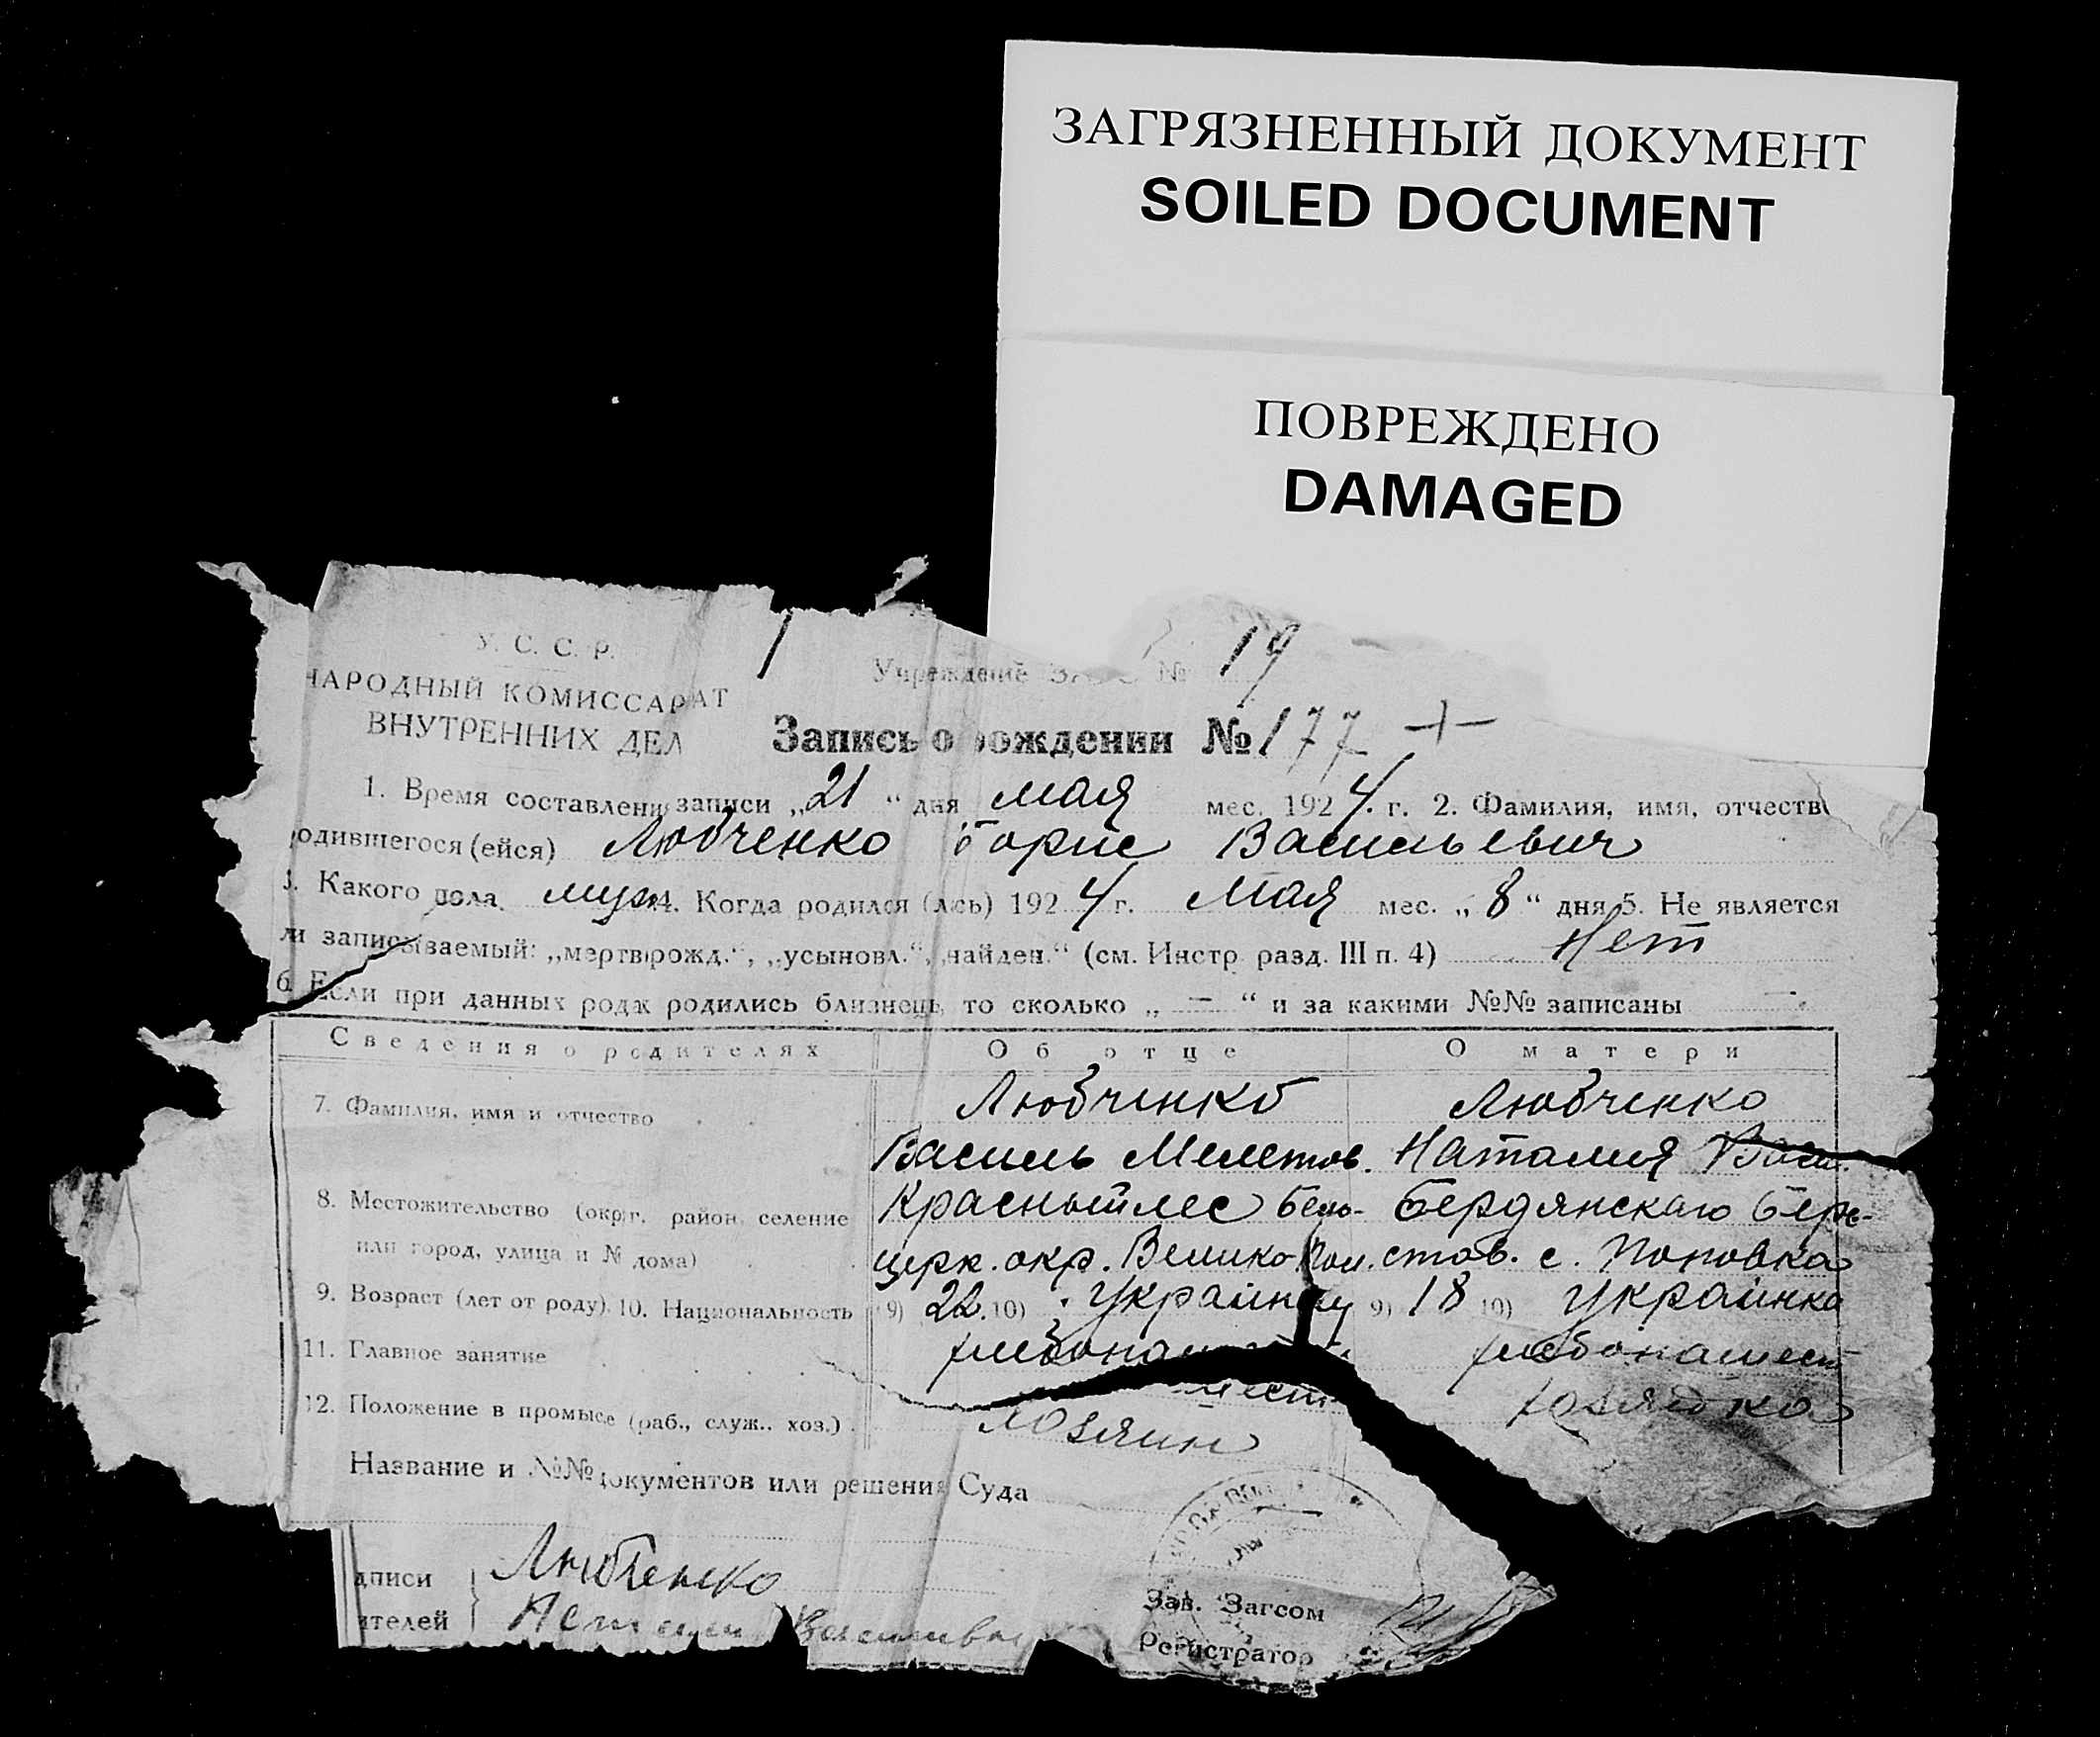 ЗАГРЯЗНЕННЫЙ ДОКУМЕНТ
SOILED DOCUMENT
ПОВРЕЖДЕНО
DAMAGED
У. С. С. Р.
НАРОДНЫЙ КОМИССАРИАТ
ВНУТРЕННИХ ДЕЛ
Учреждение ЗАГС № 19
Запись о рождении № 177 +
1. Время составлени записи „21“ дня мая мес. 1924 г. 2. Фамилия, имя, отчеств
одившегося (ейся) Любченко Борис Васильевич
3. Какого пола муж 4. Когда родился (лсь) 1924 г. Мая мес. „8“ дня 5. Не является
ли записываемый: „мертврожд.“, „усыновл.“, „найден.“ (см. Инстр. разд. III п. 4) Нет
6. Если при данных родах родились близнецы, то сколько „—“ и за какими №№ записаны —
Сведения о родителях Об отце О матери
7. Фамилия, имя и отчество Любченко Любченко
Василь Мелетов. Наталия
8. Местожительство (округ, район, селение Красный лес Бело- Бердянскаго Бере-
или город, улица и № дома) церк. окр. Велико Пол. стов. с. Поповка
9. Возраст (лет от роду). 10. Национальность 9) 22 10) Украинец 9) 18 10) Украинка
11. Главное занятие хлебопаш хлебопашест
12. Положение в промысе (раб., служ., хоз.) хозяин хозяйка
Название и №№ документов или решения Суда
дписи Любченко
ителей
Зав. Загсом
Регистратор